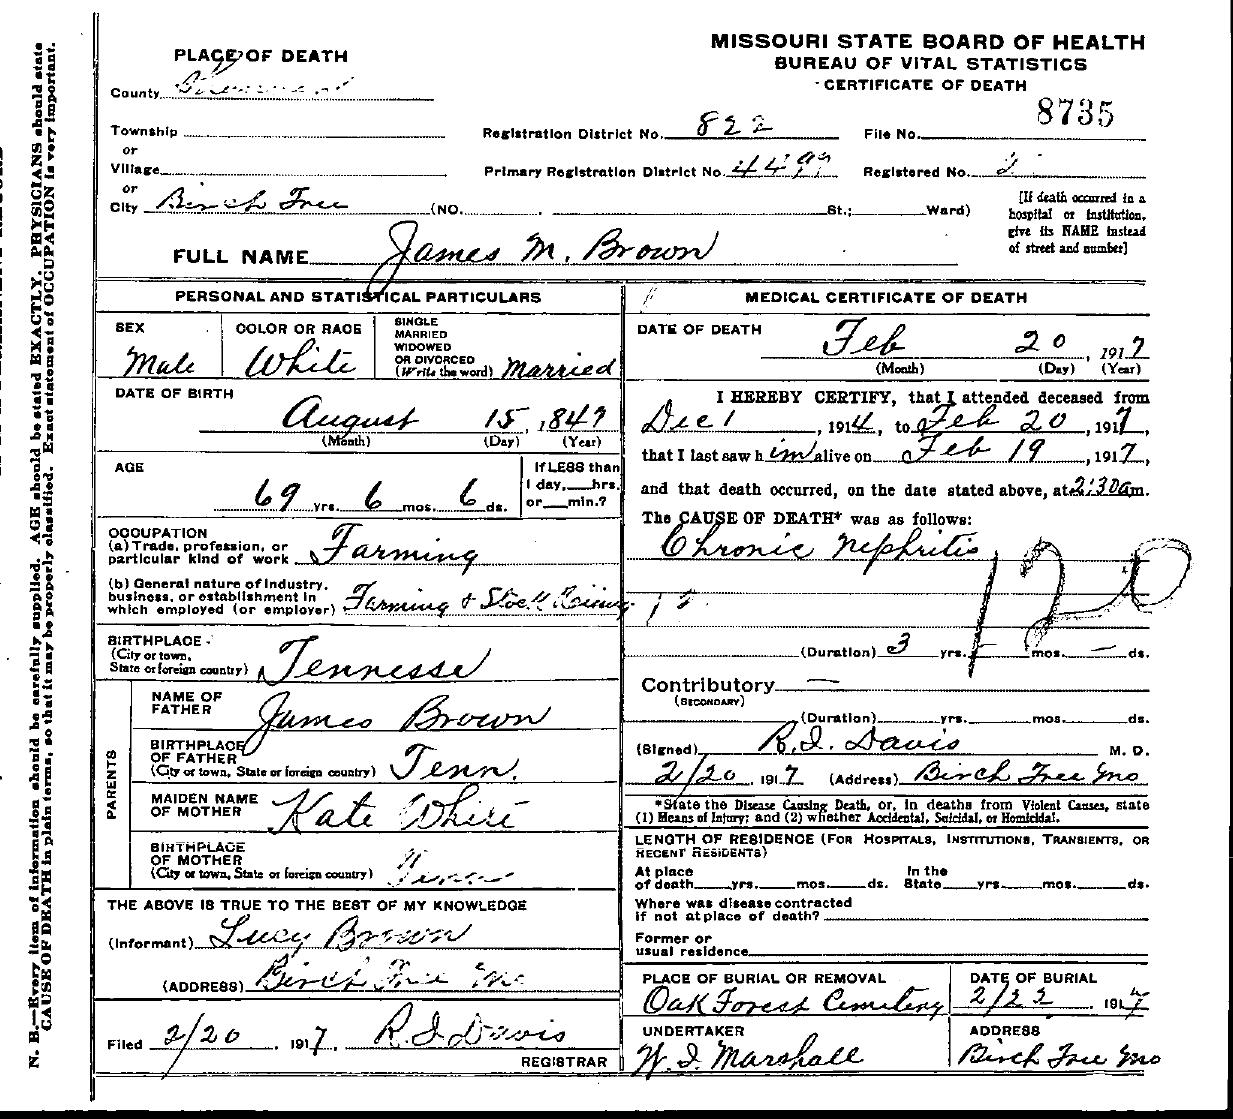 MISSOURI STATE BOARD OF HEALTH
BUREAU OF VITAL STATISTICS
CERTIFICATE OF DEATH
8735
PLACE OF DEATH
County
Township
or
Village
or
City Birch Tree (NO. St.; Ward)
Registration District No. 822 File No.
Primary Registration District No. 4499 Registered No.
[If death occurred in a
hospital or institution,
give its NAME instead
of street and number]
FULL NAME James M. Brown
PERSONAL AND STATISTICAL PARTICULARS
SEX
Male
COLOR OR RACE
White
SINGLE
MARRIED
WIDOWED
OR DIVORCED
(Write the word) Married
DATE OF BIRTH
August 15, 1847
(Month) (Day) (Year)
AGE
69 yrs. 6 mos. 6 ds.
If LESS than
1 day, hrs.
or min.?
OCCUPATION
(a) Trade, profession, or
particular kind of work Farming
(b) General nature of industry,
business, or establishment in
which employed (or employer) Farming & Stock
BIRTHPLACE
(City or town,
State or foreign country) Tennesse
PARENTS
NAME OF
FATHER James Brown
BIRTHPLACE
OF FATHER
(City or town, State or foreign country) Tenn.
MAIDEN NAME
OF MOTHER Kate White
BIRTHPLACE
OF MOTHER
(City or town, State or foreign country)
THE ABOVE IS TRUE TO THE BEST OF MY KNOWLEDGE
(Informant) Lucy Brown
(ADDRESS) Birch Tree Mo
Filed 2/20, 1917, R.I. Davis
REGISTRAR
MEDICAL CERTIFICATE OF DEATH
DATE OF DEATH
Feb 20, 1917
(Month) (Day) (Year)
I HEREBY CERTIFY, that I attended deceased from
Dec 1, 1914, to Feb 20, 1917,
that I last saw him alive on Feb 19, 1917,
and that death occurred, on the date stated above, at 2:30 am.
The CAUSE OF DEATH* was as follows:
Chronic Nephritis
120
(Duration) 3 yrs. – mos. – ds.
Contributory —
(SECONDARY)
(Duration) yrs. mos. ds.
(Signed) R.I. Davis M. D.
2/20 1917 (Address) Birch Tree Mo
*State the Disease Causing Death, or, in deaths from Violent Causes, state
(1) Means of Injury; and (2) whether Accidental, Suicidal, or Homicidal.
LENGTH OF RESIDENCE (FOR HOSPITALS, INSTITUTIONS, TRANSIENTS, OR
RECENT RESIDENTS)
At place In the
of death yrs. mos. ds. State yrs. mos. ds.
Where was disease contracted
if not at place of death?
Former or
usual residence
PLACE OF BURIAL OR REMOVAL
Oak Forest Cemetery
DATE OF BURIAL
2/22 1917
UNDERTAKER
W. I. Marshall
ADDRESS
Birch Tree Mo
N. B.—Every item of information should be carefully supplied. AGE should be stated EXACTLY. PHYSICIANS should state
CAUSE OF DEATH in plain terms, so that it may be properly classified. Exact statement of OCCUPATION is very important.